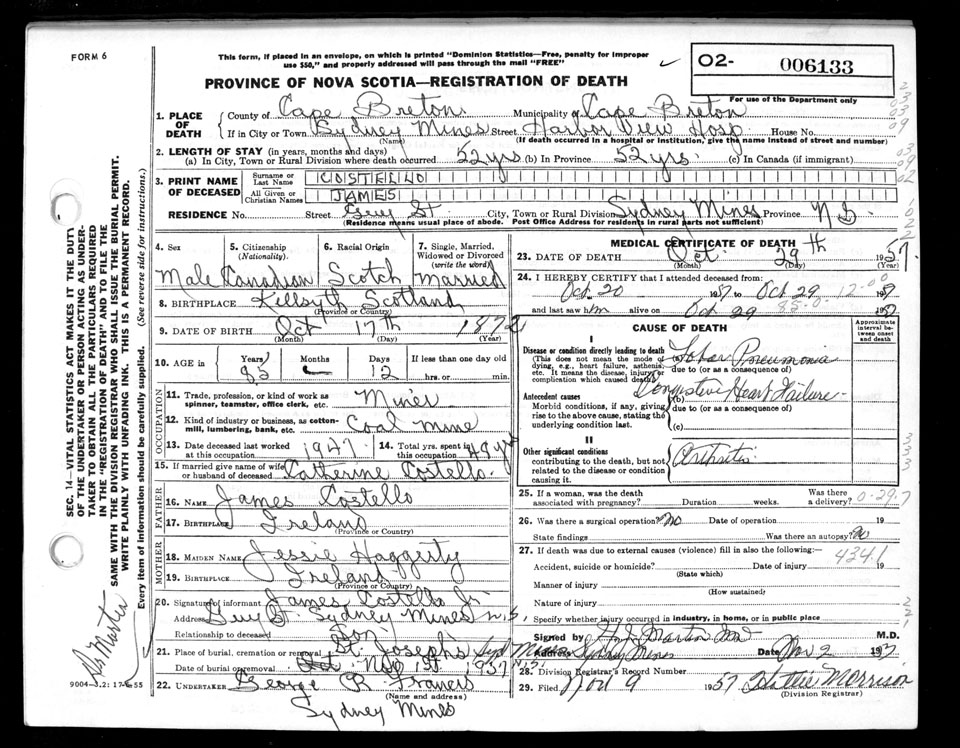 FORM 6
This form, if placed in an envelope, on which is printed "Dominion Statistics—Free, penalty for improper
use $50," and properly addressed will pass through the mail "FREE"
PROVINCE OF NOVA SCOTIA—REGISTRATION OF DEATH
02- 006133
For use of the Department only
1. PLACE OF DEATH
County of Cape Breton Municipality of Cape Breton
If in City or Town Sydney Mines Street Harbor View Hosp House No.
(Name) (If death occurred in a hospital or institution, give the name instead of street and number)
2. LENGTH OF STAY (in years, months and days)
(a) In City, Town or Rural Division where death occurred 52 yrs (b) In Province 52 yrs. (c) In Canada (if immigrant)
3. PRINT NAME OF DECEASED
Surname or Last Name COSTELLO
All Given or Christian Names JAMES
RESIDENCE No. Street Guy St City, Town or Rural Division Sydney Mines Province N S.
(Residence means usual place of abode. Post Office Address for residents in rural parts not sufficient)
4. Sex Male
5. Citizenship (Nationality). Canadian
6. Racial Origin Scotch
7. Single, Married, Widowed or Divorced (write the word) Married
8. BIRTHPLACE Killsyth Scotland
(Province or Country)
9. DATE OF BIRTH Oct 17th 1872
(Month) (Day) (Year)
10. AGE in Years 85 Months Days 12 If less than one day old
hrs. or min.
OCCUPATION
11. Trade, profession, or kind of work as
spinner, teamster, office clerk, etc. Miner
12. Kind of industry or business, as cotton-
mill, lumbering, bank, etc. Coal Mine
13. Date deceased last worked
at this occupation 1947
14. Total yrs. spent in
this occupation 49 yrs
15. If married give name of wife
or husband of deceased Catherine Costello.
FATHER
16. NAME James Costello
17. BIRTHPLACE Ireland
(Province or Country)
MOTHER
18. MAIDEN NAME Jessie Haggirty
19. BIRTHPLACE Ireland
(Province or Country)
20. Signature of informant James Costello Jr
Address Guy St. Sydney Mines N.S.
Relationship to deceased Son
21. Place of burial, cremation or removal St. Joseph's Syd Mines N.S.
Date of burial or removal Nov 1st 1957
22. UNDERTAKER George R Francis
(Name and address)
Sydney Mines
MEDICAL CERTIFICATE OF DEATH
23. DATE OF DEATH Oct. 29th 1957
(Month) (Day) (Year)
24. I HEREBY CERTIFY that I attended deceased from:
Oct. 20 1957 to Oct 29 1957
and last saw him alive on Oct 29 1957
12-00
85-0
CAUSE OF DEATH
Approximate interval between onset and death
I
Disease or condition directly leading to death
(This does not mean the mode of
dying, e.g., heart failure, asthenia,
etc. It means the disease, injury or
complication which caused death)
Lobar Pneumonia
due to (or as a consequence of)
Antecedent causes
Morbid conditions, if any, giving
rise to the above cause, stating the
underlying condition last.
Congestive Heart Failure
(b)
due to (or as a consequence of)
(c)
II
Other significant conditions
contributing to the death, but not
related to the disease or condition
causing it.
Arthritis
25. If a woman, was the death
associated with pregnancy? Duration weeks. Was there
a delivery?
0-29.7
26. Was there a surgical operation? No Date of operation 19
State findings Was there an autopsy? No
27. If death was due to external causes (violence) fill in also the following:—
4341
Accident, suicide or homicide? Date of injury 19
(State which)
Manner of injury
(How sustained)
Nature of injury
Specify whether injury occurred in industry, in home, or in public place
Signed by Martin M.D.
Address Sydney Mines Date Nov 2 1957
28. Division Registrar's Record Number
29. Filed Nov 9 1957 Hattie Morrison
(Division Registrar)
SEC. 14—VITAL STATISTICS ACT MAKES IT THE DUTY
OF THE UNDERTAKER OR PERSON ACTING AS UNDER-
TAKER TO OBTAIN ALL THE PARTICULARS REQUIRED
IN THE "REGISTRATION OF DEATH" AND TO FILE THE
SAME WITH THE DIVISION REGISTRAR WHO SHALL ISSUE THE BURIAL PERMIT.
WRITE PLAINLY WITH UNFADING INK. THIS IS A PERMANENT RECORD.
Every item of information should be carefully supplied. (See reverse side for instructions.)
Dr Martin